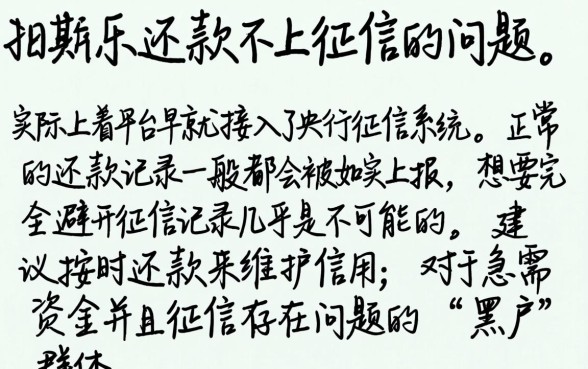 扣斯乐还款不上征信的问题。
实际上着平台早就接入了央行征信系统。正常
的还款记录一般都会被如实上报，想要完
全避开征信记录几乎是不可能的。建
议按时还款来维护信用；对于急需
资金并且征信存在问题的“黑户”
群体